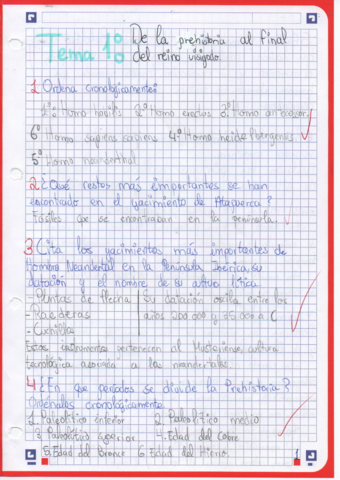 Tema 1º: De la prehistoria al final
del reino visigodo.
1. Ordena cronológicamente:
1º Homo habilis 2º Homo erectus 3º Homo antecessor
6º Homo sapiens sapiens 4º Homo heidelbergensis
5º Homo neanderthal
2. ¿Qué restos más importantes se han
encontrado en el yacimiento de Atapuerca?
Fósiles que se encontraban en la península.
3. Cita los yacimientos más importantes de
Hombre Neandertal en la Península Ibérica, su
datación y el nombre de su
- Puntas de flecha Su datación oscila entre los
- Raederas años 200 000 y 35 000 a C
- Cuchillos
Estos instrumentos pertenecen al Musteriense, cultura
tecnológica asociada a los neandertales.
4. ¿En que períodos se divide la Prehistoria?
Ordénalos cronológicamente.
1. Paleolítico inferior 2. Paleolítico medio
3. Paleolítico superior 4. Edad del Cobre
5. Edad del Bronce 6. Edad del Hierro
1